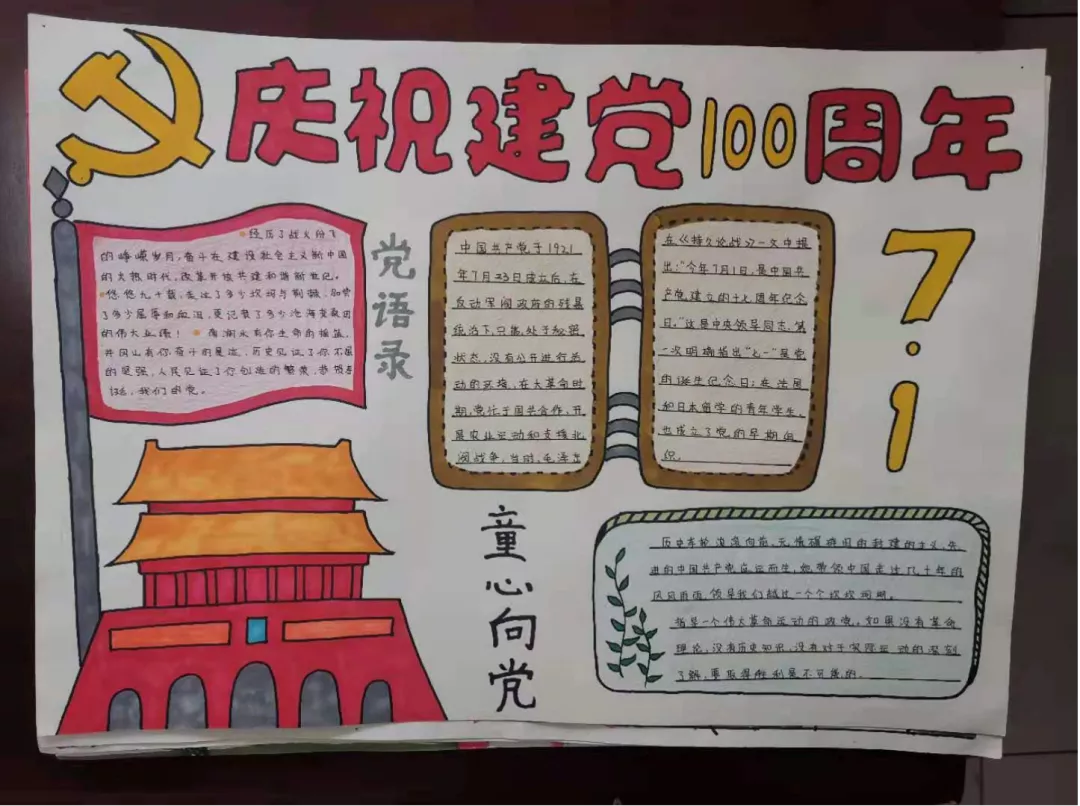 庆祝建党100周年
经历了战火纷飞
的峥嵘岁月,奋斗在建设社会主义新中国
的火热时代,改革开放共建和谐新世纪。
悠悠九十载,走过了多少坎坷与荆棘,品尝
了多少屈辱和血泪,更记载了多少沧海变桑田
的伟大业绩! 南湖水有你生命的摇篮,
井冈山有你奋斗的足迹,历史见证了你不屈
的坚强,人民见证了你创造的繁荣,
我们的党。
党语录
中国共产党于1921
年7月23日成立后,在
反动军阀政府的残暴
统治下,只能处于秘密
状态,没有公开进行活
动的环境,在大革命时
期,党忙于国共合作,开
展农业运动和支援北
阀战争,当时,毛泽东
在《持久论战》一文中提
出:“今年7月1日,是中国共
产党建立的十七周年纪念
日。”这是中央领导同志,第
一次明确指出“七一”是党
的诞生纪念日;在法国
和日本留学的青年学生,
也成立了党的早期组
织。
7·1
童心向党
历史车轮滚滚向前,无情摧毁旧的封建的主义,先
进的中国共产党应运而生,她带领中国走过几十年的
风风雨雨,领导我们越过一个个坎坎坷坷。
指导一个伟大革命运动的政党,如果没有革命
理论,没有历史知识,没有对于实际运动的深刻
了解,要取得胜利是不可能的。